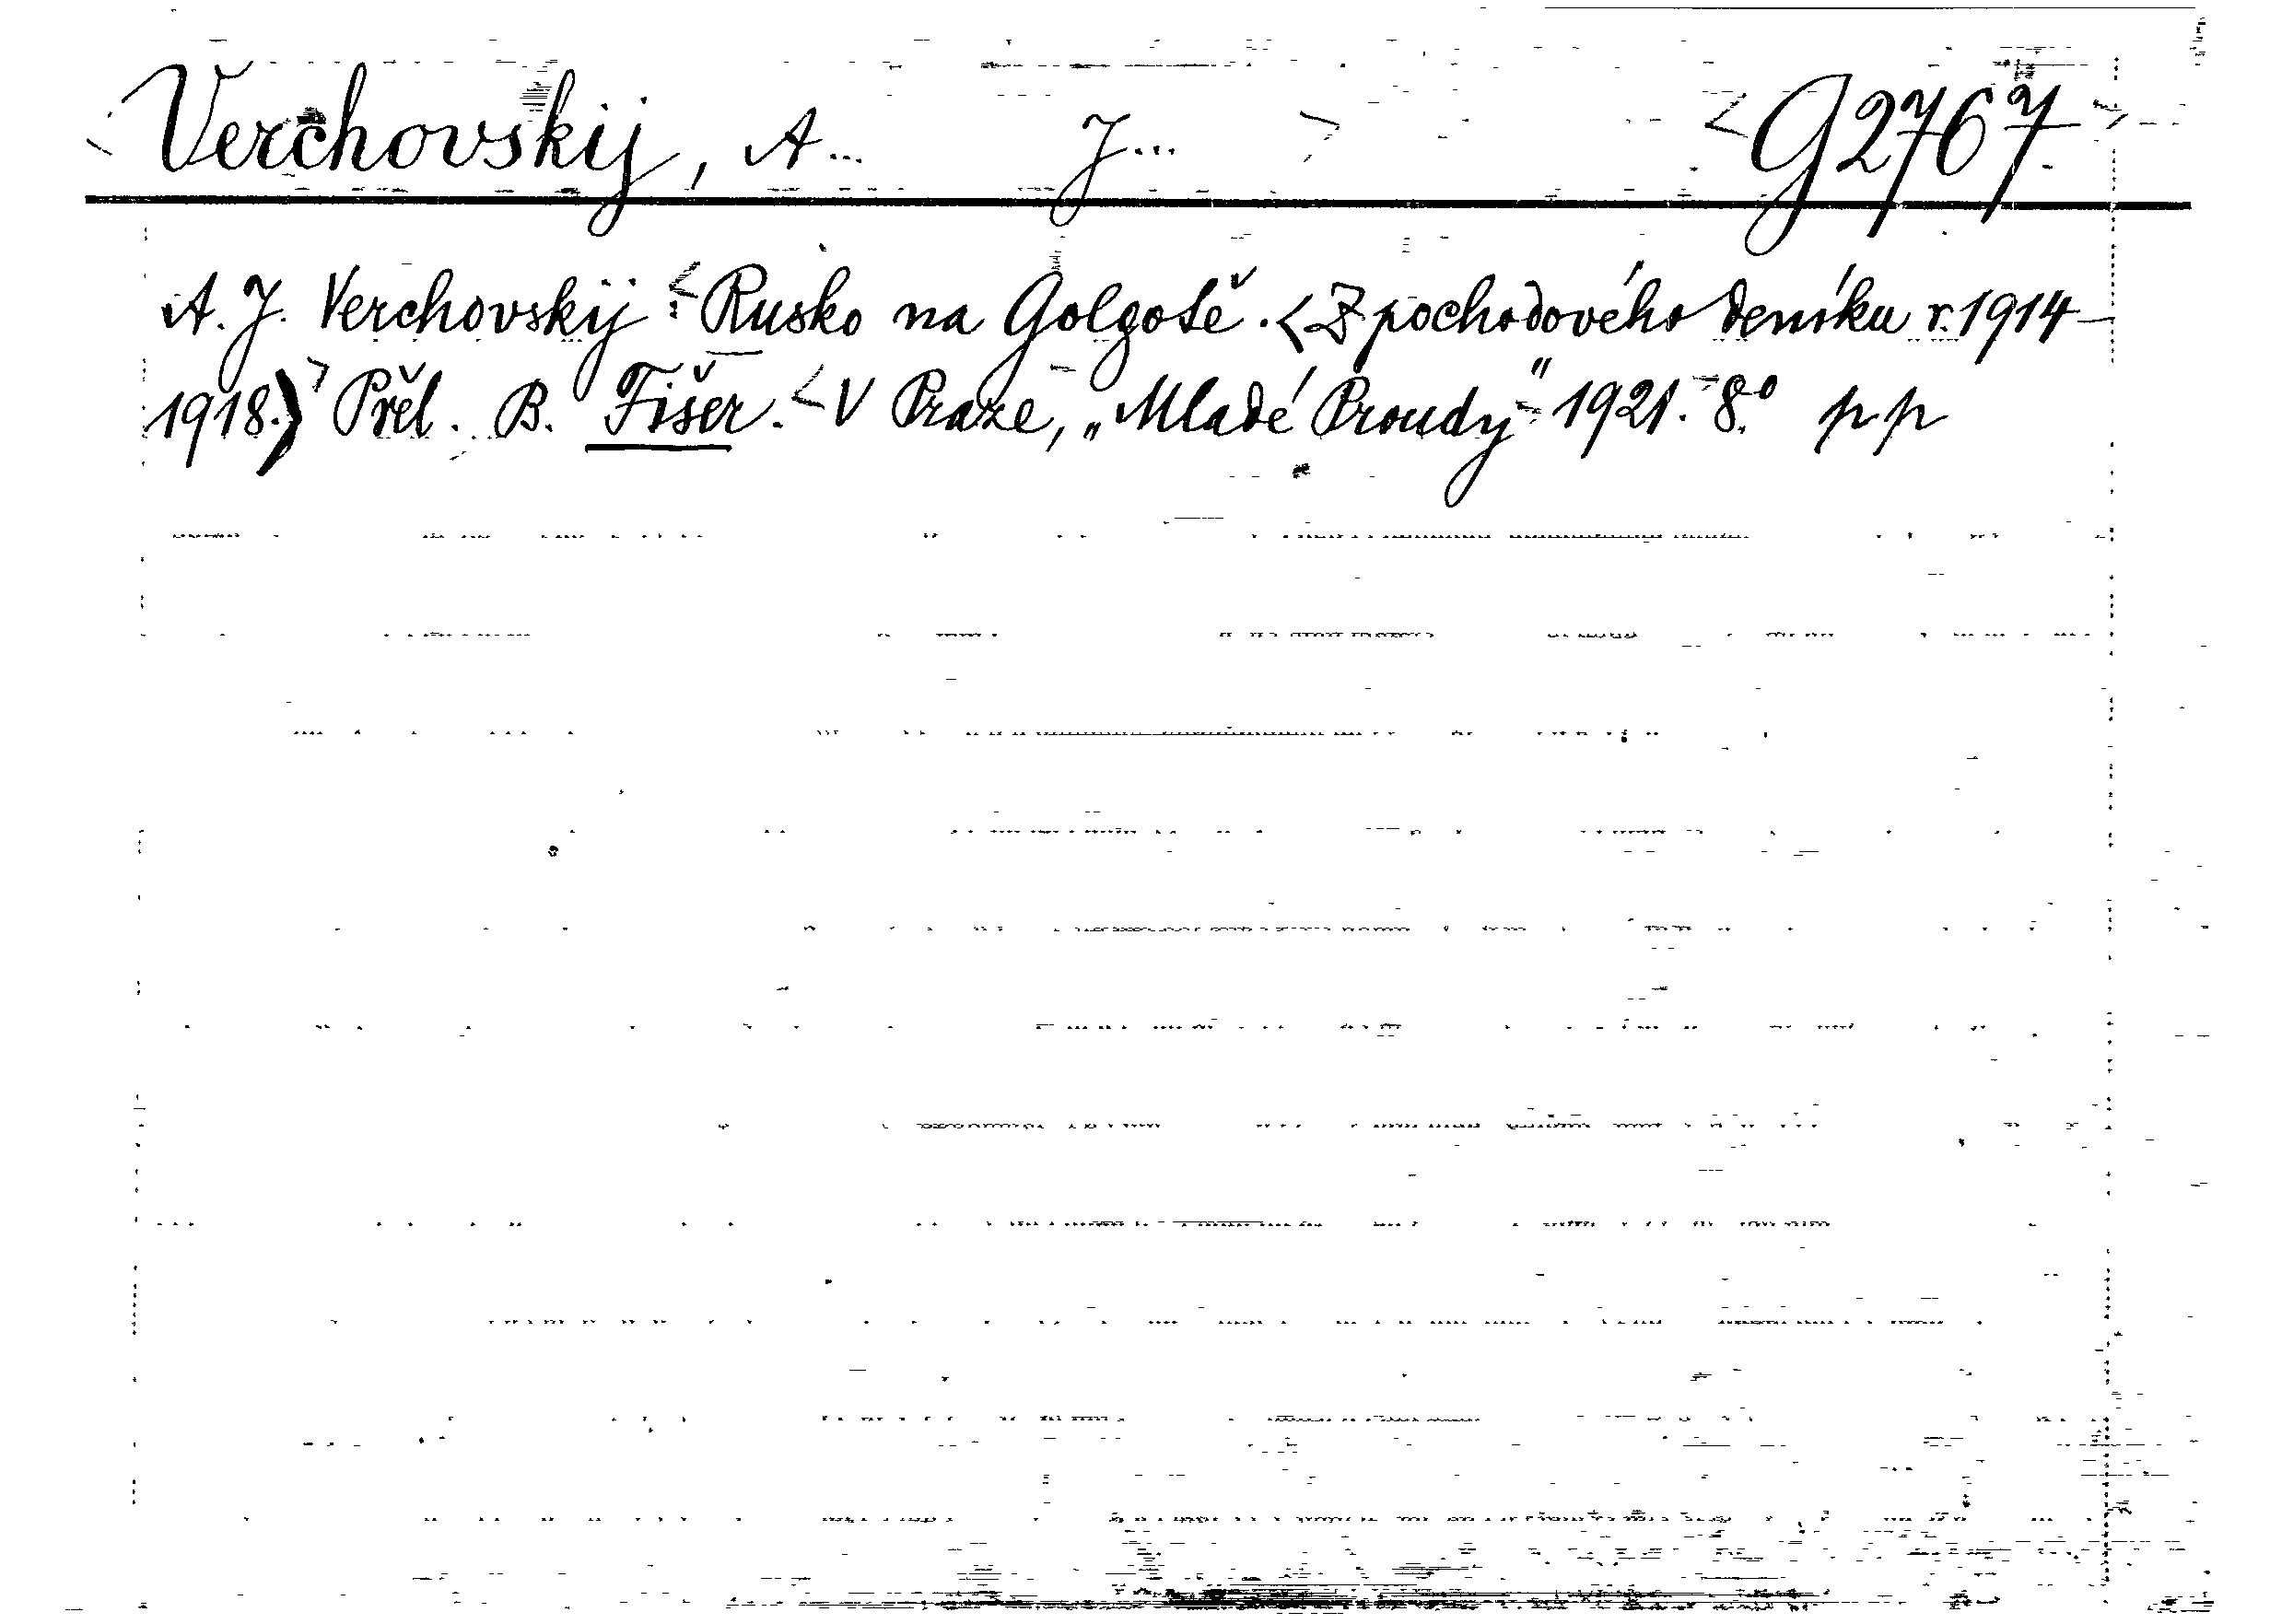 Verchovskij, A... J... G 2767.
A. J. Verchovskij Rusko na Golgotě. (Z pochodového deníku r. 1914–
1918.) Přel. B. Fišer. V Praze, „Mladé Proudy“ 1921. 8.° pp